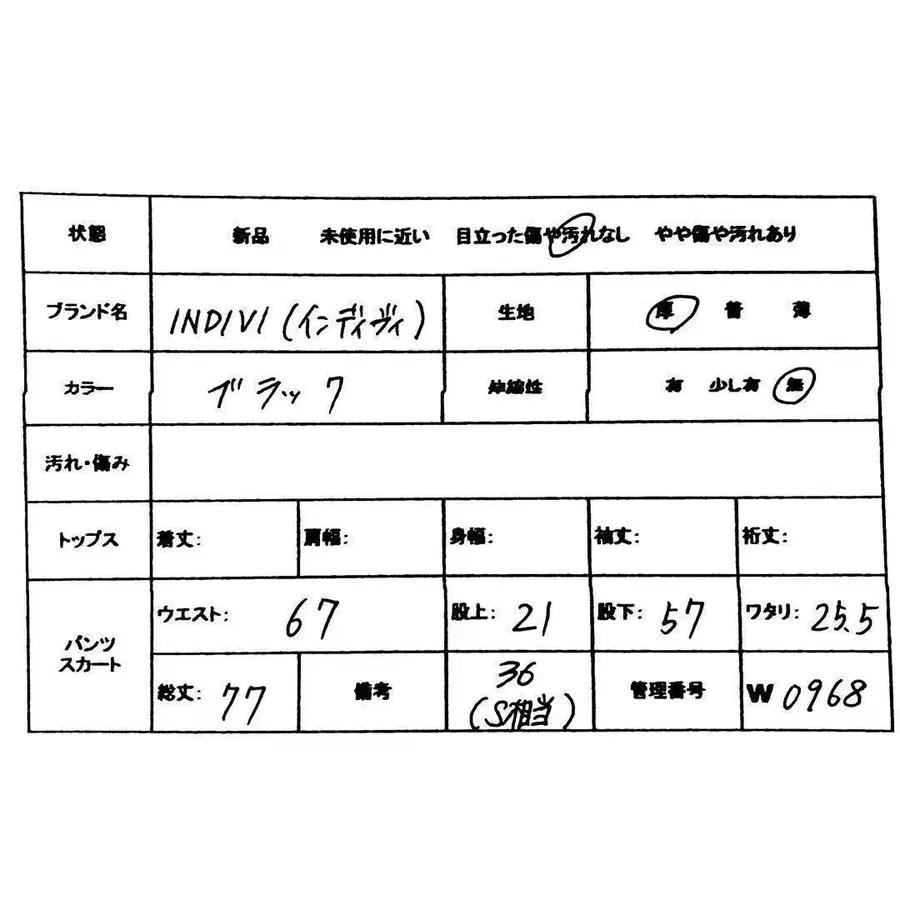 状態 新品 未使用に近い 目立った傷や汚れなし やや傷や汚れあり
ブランド名 INDIVI (インディヴィ) 生地 厚 普 薄
カラー ブラック 伸縮性 有 少し有 無
汚れ・傷み
トップス 着丈: 肩幅: 身幅: 袖丈: 裄丈:
パンツ
スカート
ウエスト: 67 股上: 21 股下: 57 ワタリ: 25.5
総丈: 77 備考 36
(S相当)
管理番号 W 0968